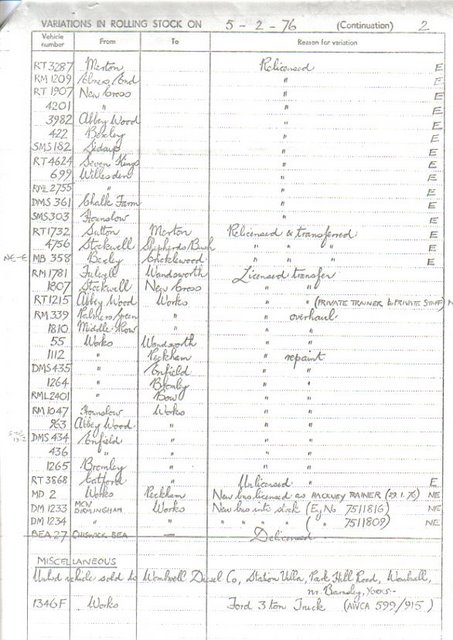 VARIATIONS IN ROLLING STOCK ON 5 - 2 - 76 (Continuation) 2
Vehicle number From To Reason for variation
RT 3287 Merton Relicensed E
RM 1209 Elmers End " E
RT 1907 New Cross " E
4201 " " E
3982 Abbey Wood " E
422 Bexley " E
SMS 182 Sidcup " E
RT 4624 Seven Kings " E
699 Willesden " E
RML 2755 " " E
DMS 361 Chalk Farm " E
SMS 303 Hounslow " E
RT 1732 Sutton Merton Relicensed & transferred E
4756 Stockwell Shepherds Bush " " " E
NE-E MB 358 Bexley Cricklewood " " " E
RM 1781 Fulwell Wandsworth Licensed transfer
1807 Stockwell New Cross " "
RT 1215 Abbey Wood Works " " (PRIVATE TRAINER to PRIVATE STAFF) N
RM 339 Palmers Green " " overhaul
1810 Middle Row " " "
55 Works Wandsworth " "
1112 " Peckham " repaint
DMS 435 " Enfield " "
1264 " Bromley " "
RML 2401 " Bow " "
RM 1047 Hounslow Works " "
963 Abbey Wood " " "
DMS 434 Enfield " " "
436 " " " "
1265 Bromley " " "
RT 3868 Catford " Unlicensed " E
MD 2 Works Peckham New bus licensed as TRAINER (29.1.76) NE
DM 1233 MCW BIRMINGHAM Works New bus into stock (Eng No 7511816) NE
DM 1234 " " " " " " ( " 7511809) NE
BEA 27 CHISWICK BEA — Delicensed
MISCELLANEOUS
Unlist vehicle sold to Wombwell Diesel Co, Station Villa, Park Hill Road, Wombwell,
nr. Barnsley, Yorks -
1346F Works Ford 3 ton Truck (AWCA 599/915)